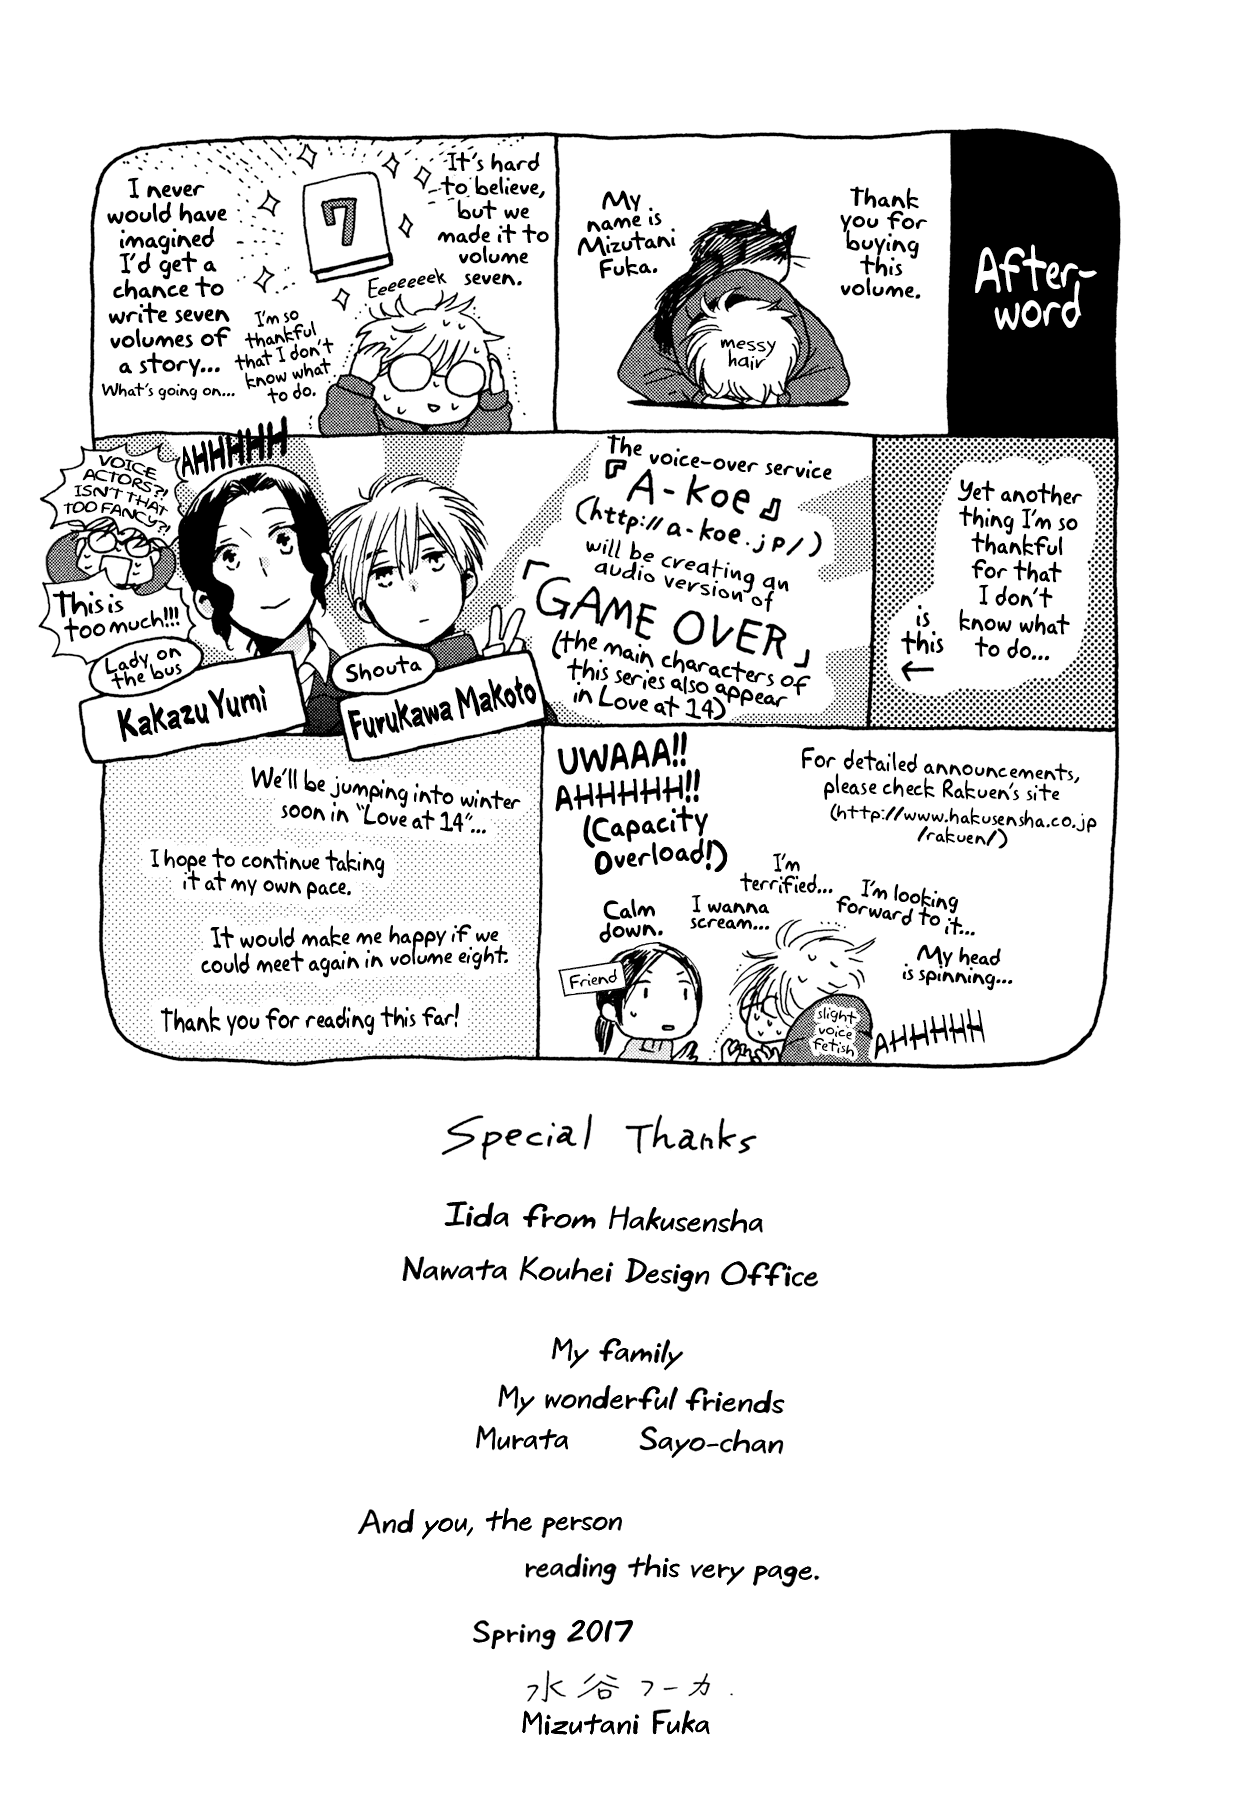 After-
word
Thank
you for
buying
this
volume.
My
name is
Mizutani
Fuka.
messy
hair
It's hard
to believe,
but we
made it to
volume
seven.
7
Eeeeeeek
I'm so
thankful
that I don't
know what
to do.
I never
would have
imagined
I'd get a
chance to
write seven
volumes of
a story...
What's going on...
Yet another
thing I'm so
thankful
for that
I don't
know what
to do...
is
this
←
The
voice-over service
『A-koe』
(http://a-koe.jp/)
will be creating an
audio version of
「GAME OVER」
(the main characters of
this series also appear
in Love at 14)
Shouta
Furukawa Makoto
AHHHHH
Lady on
the bus
Kakazu Yumi
VOICE
ACTORS?!
ISN'T THAT
TOO FANCY?!
This is
too much!!!
For detailed announcements,
please check Rakuen's site
(http://www.hakusensha.co.jp
/rakuen/)
UWAAA!!
AHHHHH!!
(Capacity
Overload!)
I'm looking
forward to it...
I'm
terrified...
I wanna
scream...
My head
is spinning...
Calm
down.
Friend
slight
voice
fetish
AHHHHH
We'll be jumping into winter
soon in "Love at 14"...
I hope to continue taking
it at my own pace.
It would make me happy if we
could meet again in volume eight.
Thank you for reading this far!
Special Thanks
Iida from Hakusensha
Nawata Kouhei Design Office
My family
My wonderful friends
Murata Sayo-chan
And you, the person
reading this very page.
Spring 2017
水谷フーカ.
Mizutani Fuka